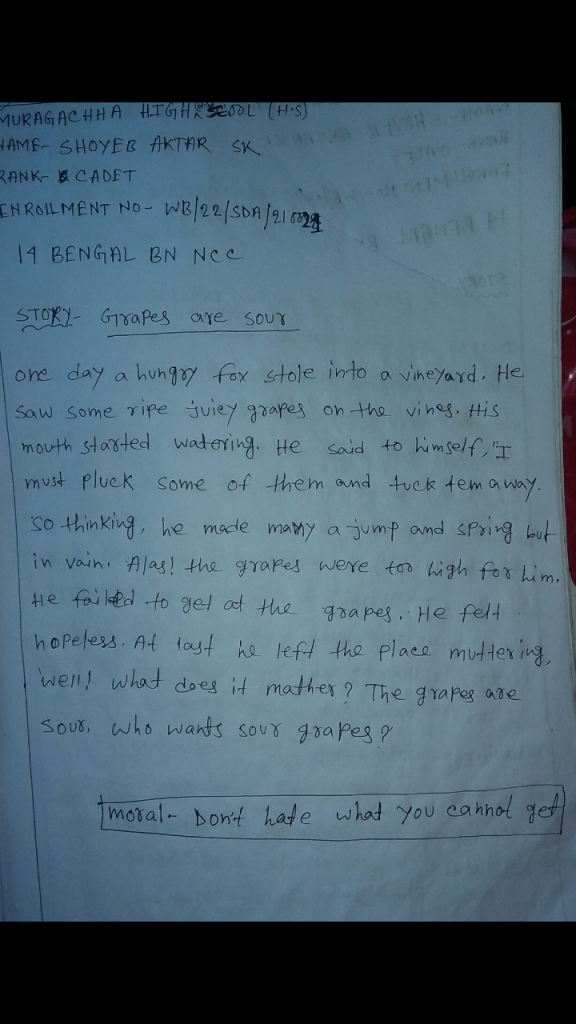 MURAGACHHA HIGH SCOOL (H.S)
NAME- SHOYEB AKTAR SK
RANK- CADET
ENROLLMENT NO- WB/22/SDA/21
14 BENGAL BN NCC
STORY- Grapes are sour
one day a hungry fox stole into a vineyard. He
saw some ripe juicy grapes on the vines. His
mouth started watering. He said to himself, "I
must pluck some of them and tuck tem away.
so thinking, he made many a jump and spring but
in vain. Alas! the grapes were too high for him.
He failed to get at the grapes. He felt
hopeless. At last he left the place muttering,
'well! what does it mather? The grapes are
sour. who wants sour grapes?
moral- Don't hate what you cannot get